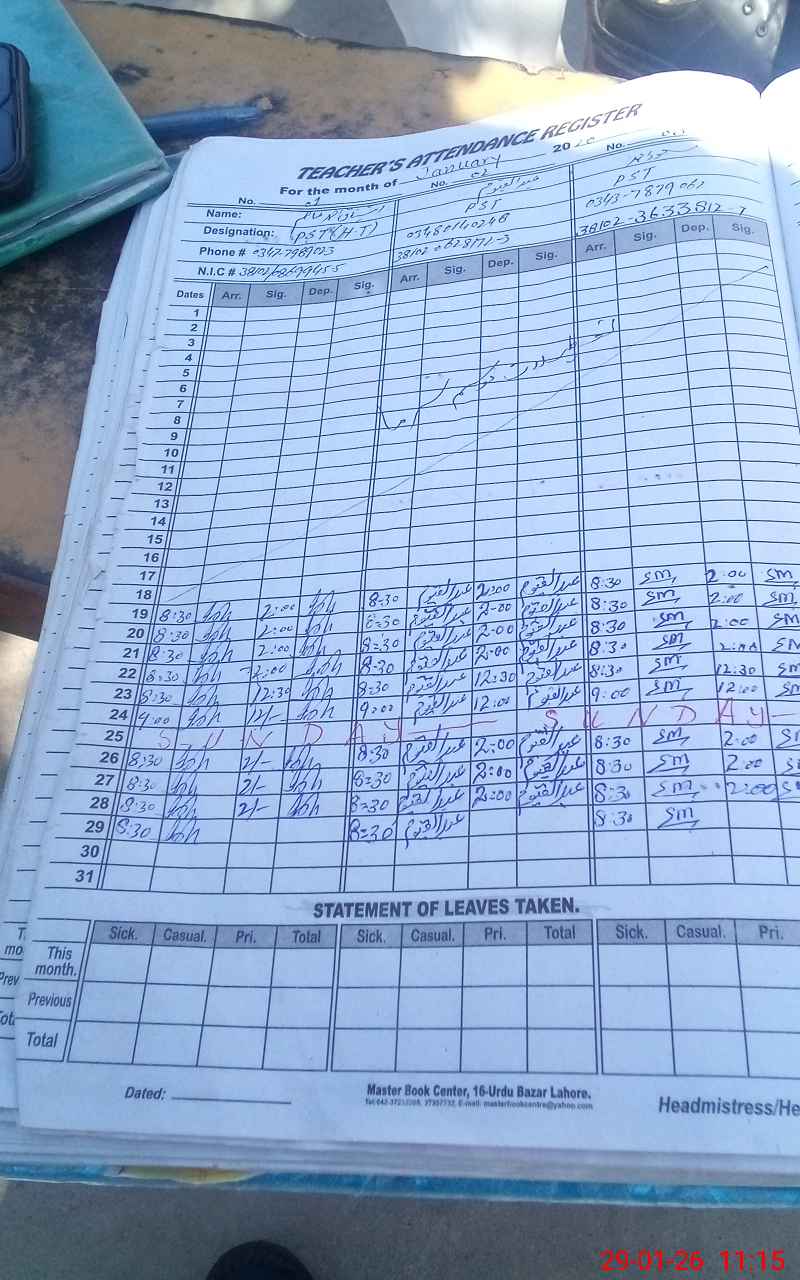 TEACHER'S ATTENDANCE REGISTER
For the month of January 20
No. 01 No. 02 No. 03
Name: عبدالقیوم
Designation: PST (H-T) PST PST
Phone # 0342-7989023 03480140248 0343-7879061
N.I.C # 38102-0628172-3 38102-3633812-7
Dates Arr. Sig. Dep. Sig. Arr. Sig. Dep. Sig. Arr. Sig. Dep. Sig.
1
2
3
4
5
6
7
8
9
10
11
12
13
14
15
16
17
18
19 8:30 2:00 8:30 عبدالقیوم 2:00 عبدالقیوم 8:30 SM 2:00 SM
20 8:30 2:00 8:30 عبدالقیوم 2:00 عبدالقیوم 8:30 SM 2:00 SM
21 8:30 2:00 8:30 عبدالقیوم 2:00 عبدالقیوم 8:30 SM 2:00 SM
22 8:30 2:00 8:30 عبدالقیوم 2:00 عبدالقیوم 8:30 SM 2:00 SM
23 8:30 12:30 8:30 عبدالقیوم 12:30 عبدالقیوم 8:30 SM 12:30 SM
24 9:00 12/- 9:00 عبدالقیوم 12:00 عبدالقیوم 9:00 SM 12:00 SM
25 SUNDAY SUNDAY
26 8:30 2/- 8:30 عبدالقیوم 2:00 عبدالقیوم 8:30 SM 2:00 SM
27 8:30 2/- 8:30 عبدالقیوم 2:00 عبدالقیوم 8:30 SM 2:00 SM
28 8:30 2/- 8:30 عبدالقیوم 2:00 عبدالقیوم 8:30 SM 2:00 SM
29 8:30 8:30 عبدالقیوم 8:30 SM
30
31
STATEMENT OF LEAVES TAKEN.
Sick. Casual. Pri. Total Sick. Casual. Pri. Total Sick. Casual. Pri.
This month.
Previous
Total
Dated:
Master Book Center, 16-Urdu Bazar Lahore.
Headmistress/He
29-01-26 11:15